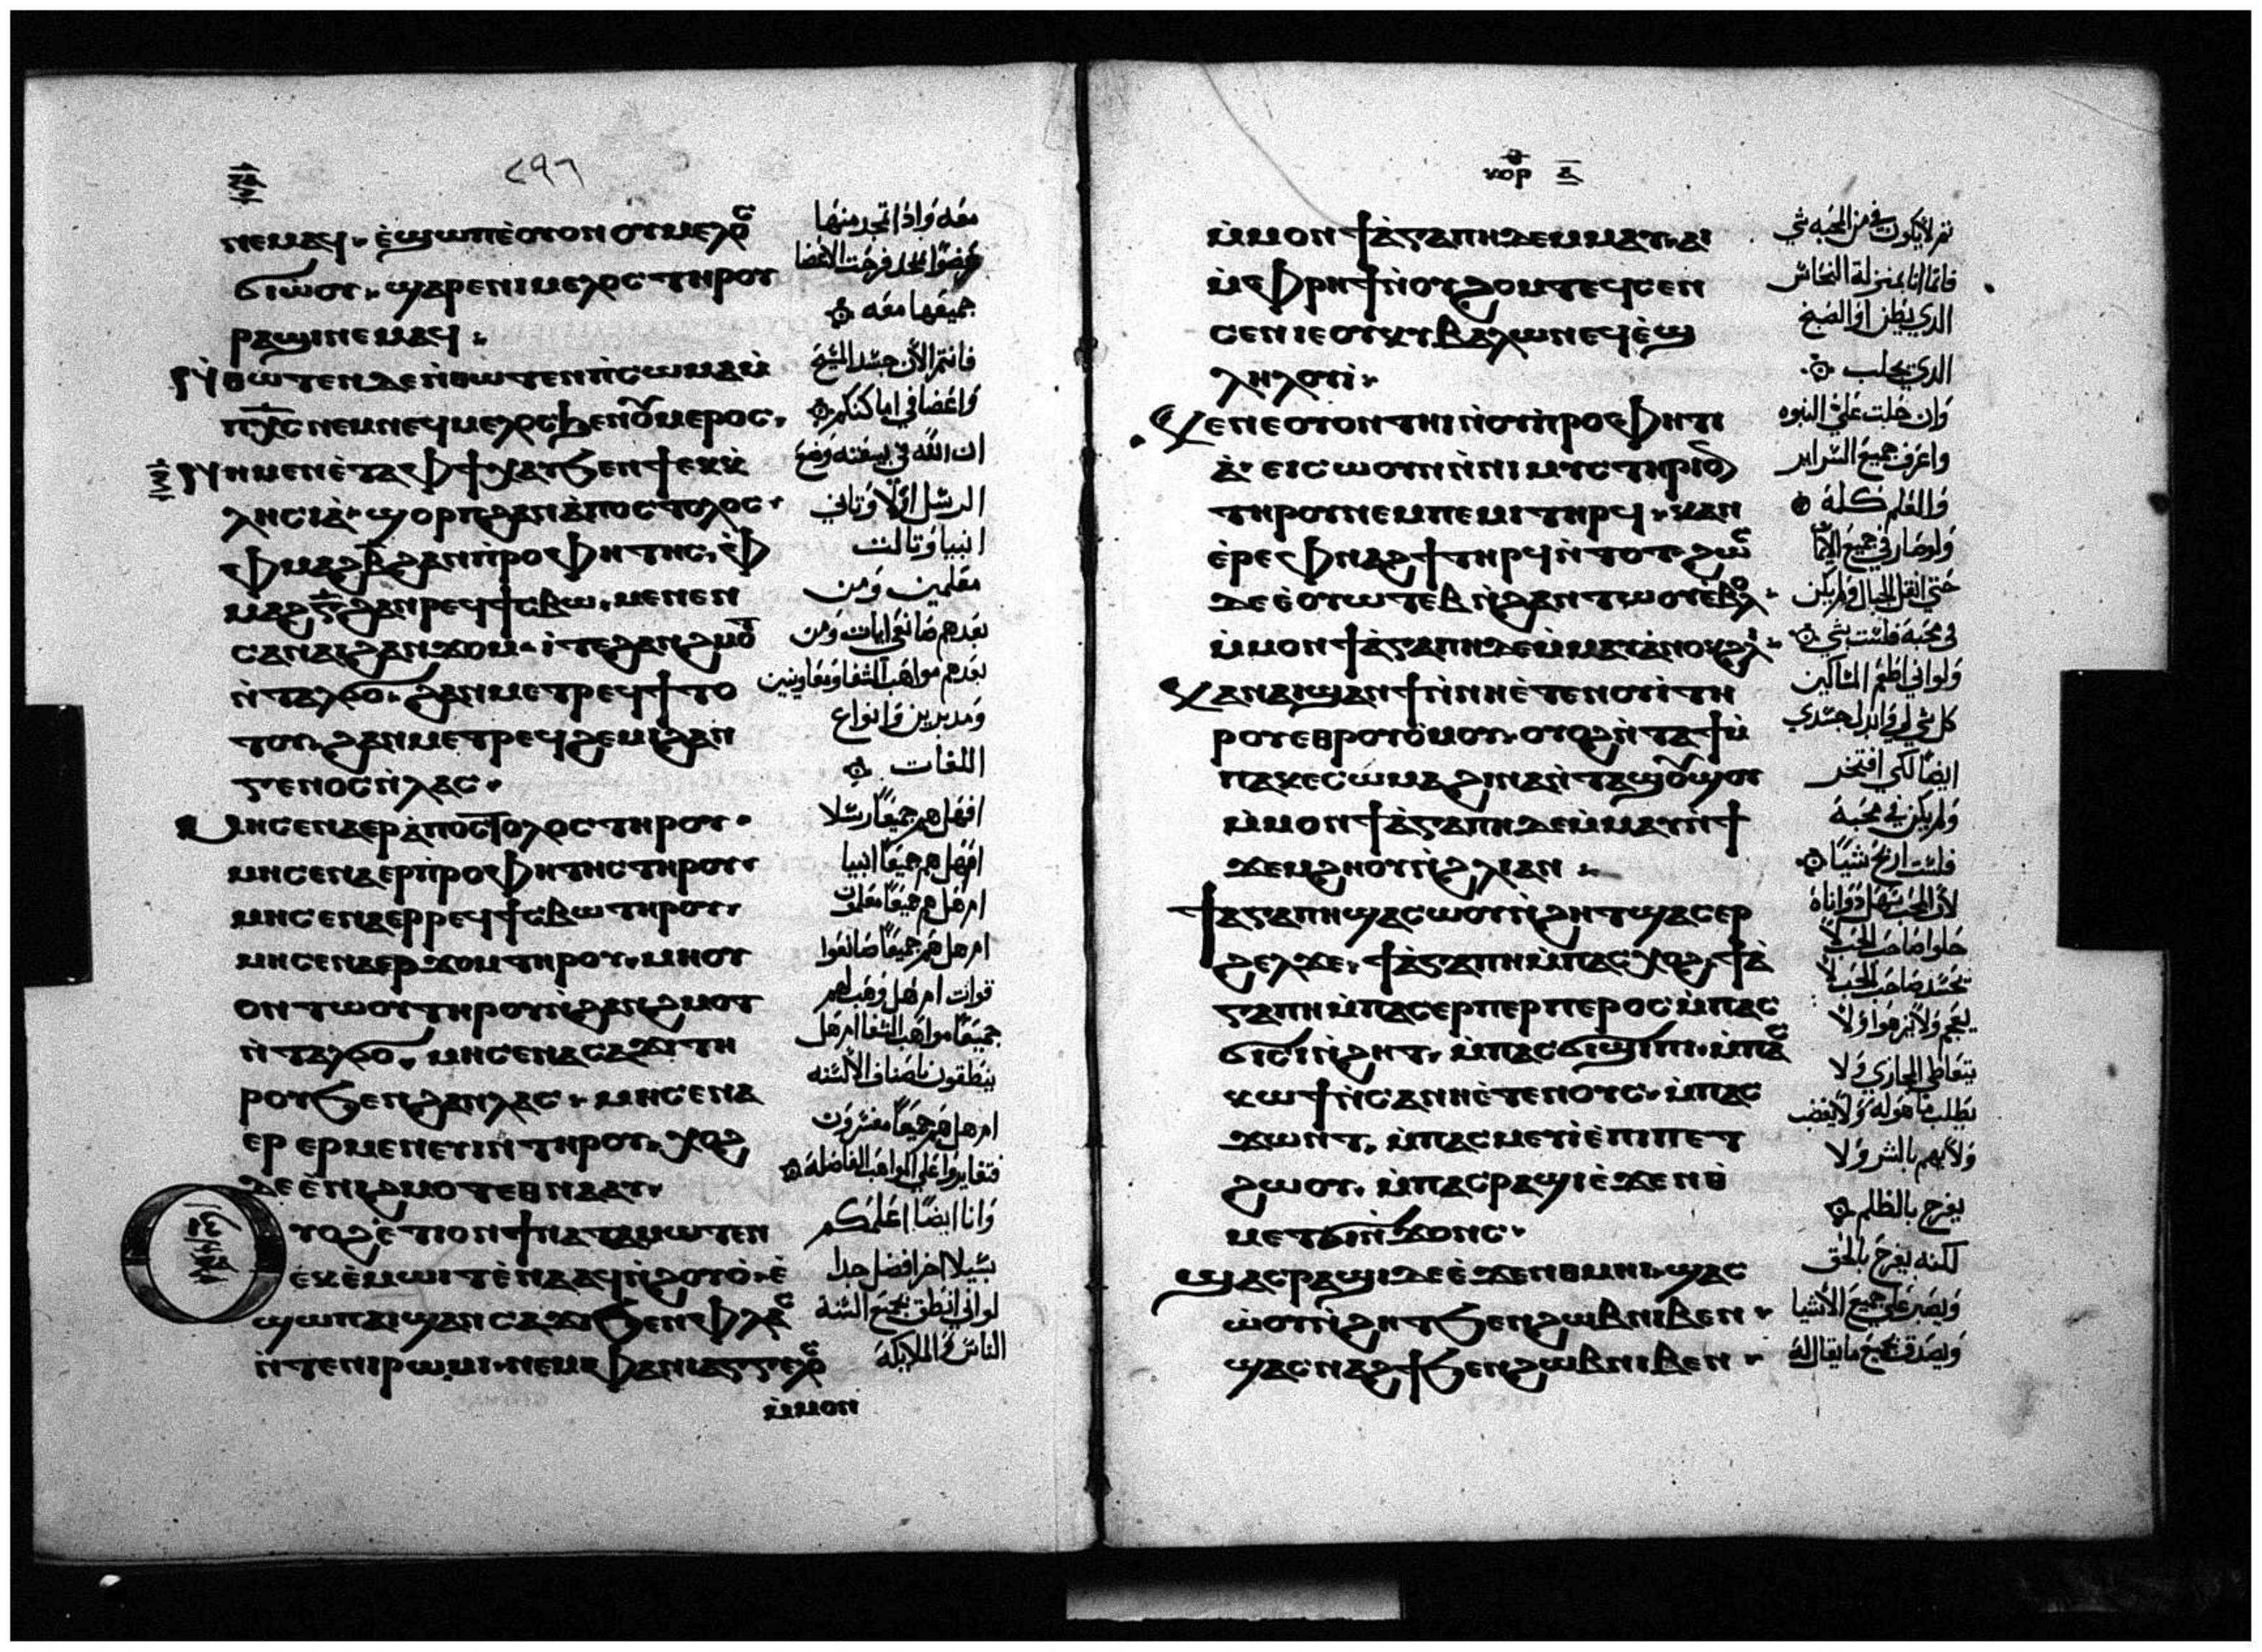 ٢٩٦
ⲛⲉⲙⲁϥ· ⲉ̀ϣⲱⲡ ⲉ̀ⲟⲩⲟⲛ ⲟⲩⲙⲉⲗⲟⲥ
ϭⲓⲱ̀ⲟⲩ· ϣⲁⲣⲉⲛⲓⲙⲉⲗⲟⲥ ⲧⲏⲣⲟⲩ
ⲣⲁϣⲓ ⲛⲉⲙⲁϥ·
ⲛ̀ⲑⲱⲧⲉⲛ ⲇⲉ ⲛ̀ⲑⲱⲧⲉⲛ ⲡ̀ⲥⲱⲙⲁ ⲙ̀
ⲡⲭ̅ⲥ̅ ⲛⲉⲙ ⲛⲉϥⲙⲉⲗⲟⲥ ϧⲉⲛ ⲟⲩⲙⲉⲣⲟⲥ·
ⲟⲩⲟⲛ ⲙⲉⲛ ⲉ̀ⲧⲁ ⲫϯ ⲭⲁⲩ ϧⲉⲛ ϯⲉⲕⲕ̀
ⲗⲏⲥⲓⲁ̀· ϣⲟⲣⲡ ϩⲁⲛⲁ̀ⲡⲟⲥⲧⲟⲗⲟⲥ·
ⲫⲙⲁϩⲃ̅ ϩⲁⲛⲡ̀ⲣⲟⲫⲏⲧⲏⲥ· ⲫ̀
ⲙⲁϩⲅ̅ ϩⲁⲛⲣⲉϥϯⲥⲃⲱ· ⲙⲉⲛⲉⲛ
ⲥⲁⲛⲁⲓ ϩⲁⲛϫⲟⲙ· ⲓⲧⲉ ϩⲁⲛϩⲙⲟⲧ
ⲛ̀ⲧⲁⲗϭⲟ· ϩⲁⲛⲙⲉⲧⲣⲉϥϯⲧⲟ
ⲧⲟⲩ· ϩⲁⲛⲙⲉⲧⲣⲉϥϩⲉⲙⲓ ϩⲁⲛ
ⲅⲉⲛⲟⲥ ⲛ̀ⲗⲁⲥ·
ⲙⲏ ⲥⲉⲛⲁⲉⲣⲁ̀ⲡⲟⲥⲧⲟⲗⲟⲥ ⲧⲏⲣⲟⲩ·
ⲙⲏ ⲥⲉⲛⲁⲉⲣⲡ̀ⲣⲟⲫⲏⲧⲏⲥ ⲧⲏⲣⲟⲩ·
ⲙⲏ ⲥⲉⲛⲁⲉⲣⲣⲉϥϯⲥⲃⲱ ⲧⲏⲣⲟⲩ·
ⲙⲏ ⲥⲉⲛⲁⲉⲣϫⲟⲙ ⲧⲏⲣⲟⲩ· ⲙⲏ ⲟⲩ
ⲟⲛ ⲧⲱⲟⲩ ⲧⲏⲣⲟⲩ ⲛ̀ϩⲁⲛϩⲙⲟⲧ
ⲛ̀ⲧⲁⲗϭⲟ· ⲙⲏ ⲥⲉⲛⲁⲥⲁϫⲓ ⲧⲏ
ⲣⲟⲩ ϧⲉⲛ ϩⲁⲛⲗⲁⲥ· ⲙⲏ ⲥⲉⲛⲁ
ⲉⲣ ⲉⲣⲙⲉⲛⲉⲩⲓⲛ ⲧⲏⲣⲟⲩ· ⲭⲟϩ
ⲇⲉ ⲉ̀ⲛⲓϩⲙⲟⲧ ⲉⲑⲛⲁⲁⲩ·
ⲟⲩⲟϩ ⲉ̀ⲧⲓ ⲟⲛ ϯⲛⲁⲧⲁⲙⲱⲧⲉⲛ
ⲉⲕⲉⲙⲱⲓⲧ ⲉ̀ⲛⲁⲁϥ ⲛ̀ϩⲟⲩⲟ̀· ⲉ̀
ϣⲱⲡ ⲁⲓϣⲁⲛⲥⲁϫⲓ ϧⲉⲛ ⲫⲗⲁⲥ
ⲛ̀ⲧⲉⲛⲓⲣⲱⲙⲓ· ⲛⲉⲙ ⲫⲁⲛⲓⲁⲅⲅⲉⲗⲟⲥ
ⲙ̀ⲙⲟⲛ
معه واذا تمجد منها
عضوًا واحد فرحت الاعضا
جميعها معه
فانتم الان جسد المسيح
واعضا في اماكنكم
ان الله في بيعته وضع
الرسل اولا وتاني
انبيا وتالت
معلمين ومن
بعدهم صانعي ايات ومن
بعدهم مواهب الشفا ومعاونين
ومدبرين وانواع
اللغات
افهل هم جميعًا رسلا
افهل هم جميعًا انبيا
ام هل هم جميعًا معلمون
ام هل هم جميعًا صانعوا
قوات ام هل وهب لهم
جميعًا مواهب الشفا ام هل
ينطقون باصناف الالسنه
ام هل هم جميعًا مفسرون
فتغايروا على المواهب الفاضله
وانا ايضًا اعلمكم
سبيلا اخر افضل جدا
لو اني انطق بجميع السنة
الناس والملايكة
ⲕⲟⲣ ⲁ̅
ⲙ̀ⲙⲟⲛ ϯⲁ̀ⲅⲁⲡⲏ ⲇⲉ ⲙ̀ⲙⲁⲩ· ⲁⲓ
ⲙ̀ⲫⲣⲏϯ ⲛ̀ⲟⲩϩⲟⲙⲧ ⲉϥⲥⲉⲛ
ⲥⲉⲛ ⲓⲉ ⲟⲩⲕⲩⲃⲁⲗⲱⲛ ⲉϥⲉ̀ϣ
ⲗⲏⲗⲟⲩⲓ̀·
ⲕⲉⲛ ⲉⲟⲩⲟⲛⲧⲏⲓ ⲛ̀ⲟⲩⲡ̀ⲣⲟⲫⲏⲧⲓ
ⲁ̀· ⲉⲓⲥⲱⲟⲩⲛ ⲛ̀ⲛⲓⲙⲩⲥⲧⲏⲣⲓⲟⲛ
ⲧⲏⲣⲟⲩ ⲛⲉⲙ ⲡⲉⲙⲓ ⲧⲏⲣϥ· ⲕⲁⲛ
ⲉ̀ⲣⲉ ⲫⲛⲁϩϯ ⲧⲏⲣϥ ⲛ̀ⲧⲟⲧ ϩⲱⲥ
ⲇⲉ ⲉ̀ⲟⲩⲱⲧⲉⲃ ⲛ̀ϩⲁⲛⲧⲱⲟⲩ ⲉ̀ⲃⲟⲗ·
ⲙ̀ⲙⲟⲛ ϯⲁ̀ⲅⲁⲡⲏ ⲇⲉ ⲙ̀ⲙⲁⲩ ⲁⲛⲟⲕ ϩⲗⲓ·
ⲕⲁⲛ ⲁⲓϣⲁⲛϯ ⲛ̀ⲛⲏⲉ̀ⲧⲉⲛⲟⲩⲓ̀ ⲧⲏ
ⲣⲟⲩ ⲉⲑⲣⲟⲩⲟ̀ⲙⲟⲩ· ⲟⲩⲟϩ ⲛ̀ⲧⲁϯ ⲙ̀
ⲡⲁⲕⲉⲥⲱⲙⲁ ϩⲓⲛⲁ ⲛ̀ⲧⲁϣⲟⲩϣⲟⲩ
ⲙ̀ⲙⲟⲛ ϯⲁ̀ⲅⲁⲡⲏ ⲇⲉ ⲙ̀ⲙⲁⲩ ⲛ̀ϯ
ϫⲉⲙϩⲏⲟⲩ ⲛ̀ϩⲗⲓ ⲁⲛ·
ϯⲁⲅⲁⲡⲏ ϣⲁⲥⲱⲟⲩ ⲛ̀ϩⲏⲧ ϣⲁⲥⲉⲣ
ϩⲉⲗϫⲉ· ϯⲁ̀ⲅⲁⲡⲏ ⲙ̀ⲡⲁⲥⲭⲟϩ· ϯⲁ̀
ⲅⲁⲡⲏ ⲙ̀ⲡⲁⲥⲉⲣⲡⲉⲣⲡⲉⲣⲟⲥ ⲙ̀ⲡⲁⲥ
ϭⲓⲥⲓ ⲛ̀ϩⲏⲧ· ⲙ̀ⲡⲁⲥϭⲓϣⲓⲡⲓ· ⲙ̀ⲡⲁⲥ
ⲕⲱϯ ⲛ̀ⲥⲁⲛⲏⲉ̀ⲧⲉⲛⲟⲩⲥ· ⲙ̀ⲡⲁⲥ
ϫⲱⲛⲧ· ⲙ̀ⲡⲁⲥⲙⲉⲩⲓ ⲉ̀ⲡⲓⲡⲉⲧ
ϩⲱⲟⲩ· ⲙ̀ⲡⲁⲥⲣⲁϣⲓ ⲉ̀ϫⲉⲛ ⲑ̀
ⲙⲉⲧϭⲓⲛ̀ϫⲟⲛⲥ·
ϣⲁⲥⲣⲁϣⲓ ⲇⲉ ⲉ̀ϫⲉⲛ ⲑⲙⲏⲓ· ϣⲁⲥ
ⲱ̀ⲟⲩ ⲛ̀ϩⲏⲧ ϧⲉⲛ ϩⲱⲃ ⲛⲓⲃⲉⲛ·
ϣⲁⲥⲛⲁϩϯ ϧⲉⲛ ϩⲱⲃ ⲛⲓⲃⲉⲛ·
ثم لا يكون في من المحبه شي
فانما انا بمنزلة النحاس
الدي يطن او الصنج
الدي يجلب
وان حلت علي النبوه
واعرف جميع السراير
والعلم كله
ولو صار في جميع الايمان
حتى انقل الجبال ولم يكن
في محبه فلست بشي
ولو اني اطعم المساكين
كل شي لي وابدل جسدي
ايضًا لكي افتخر
ولم يكن في محبة
فلست اربح شيًا
لان المحب
حلوا صاحب الحب لا
يحسد صاحب الحب لا
يتعاطى المخازي ولا
يطلب ما هو له ولا يغضب
ولا يهم بالشر ولا
يفرح بالظلم
لكنه يفرح بالحق
ويصبر على جميع الاشيا
ويصدق بجميع ما يقال له